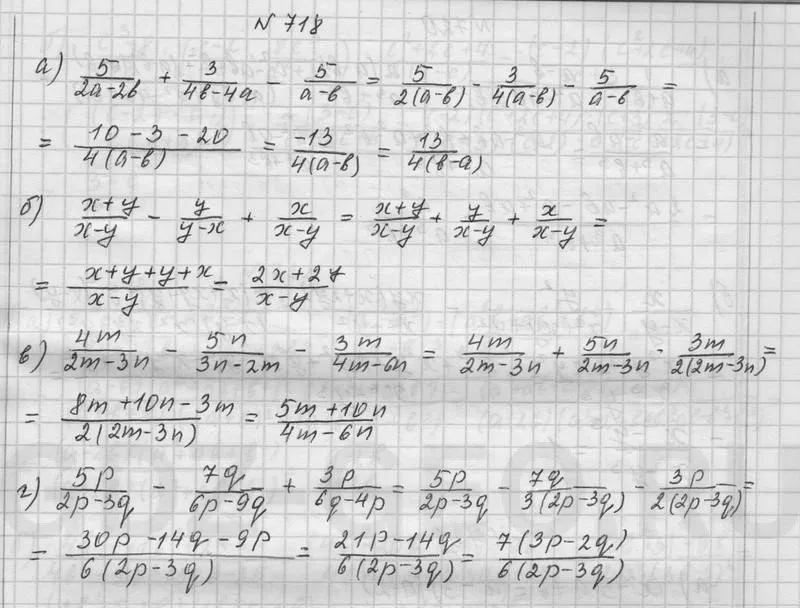 N 718
а) 5/(2a-2b) + 3/(4b-4a) - 5/(a-b) = 5/(2(a-b)) - 3/(4(a-b)) - 5/(a-b) =
= (10-3-20)/(4(a-b)) = -13/(4(a-b)) = 13/(4(b-a))
б) (x+y)/(x-y) - y/(y-x) + x/(x-y) = (x+y)/(x-y) + y/(x-y) + x/(x-y) =
= (x+y+y+x)/(x-y) = (2x+2y)/(x-y)
в) 4m/(2m-3n) - 5n/(3n-2m) - 3m/(4m-6n) = 4m/(2m-3n) + 5n/(2m-3n) - 3m/(2(2m-3n)) =
= (8m+10n-3m)/(2(2m-3n)) = (5m+10n)/(4m-6n)
г) 5p/(2p-3q) - 7q/(6p-9q) + 3p/(6q-4p) = 5p/(2p-3q) - 7q/(3(2p-3q)) - 3p/(2(2p-3q)) =
= (30p-14q-9p)/(6(2p-3q)) = (21p-14q)/(6(2p-3q)) = 7(3p-2q)/(6(2p-3q))